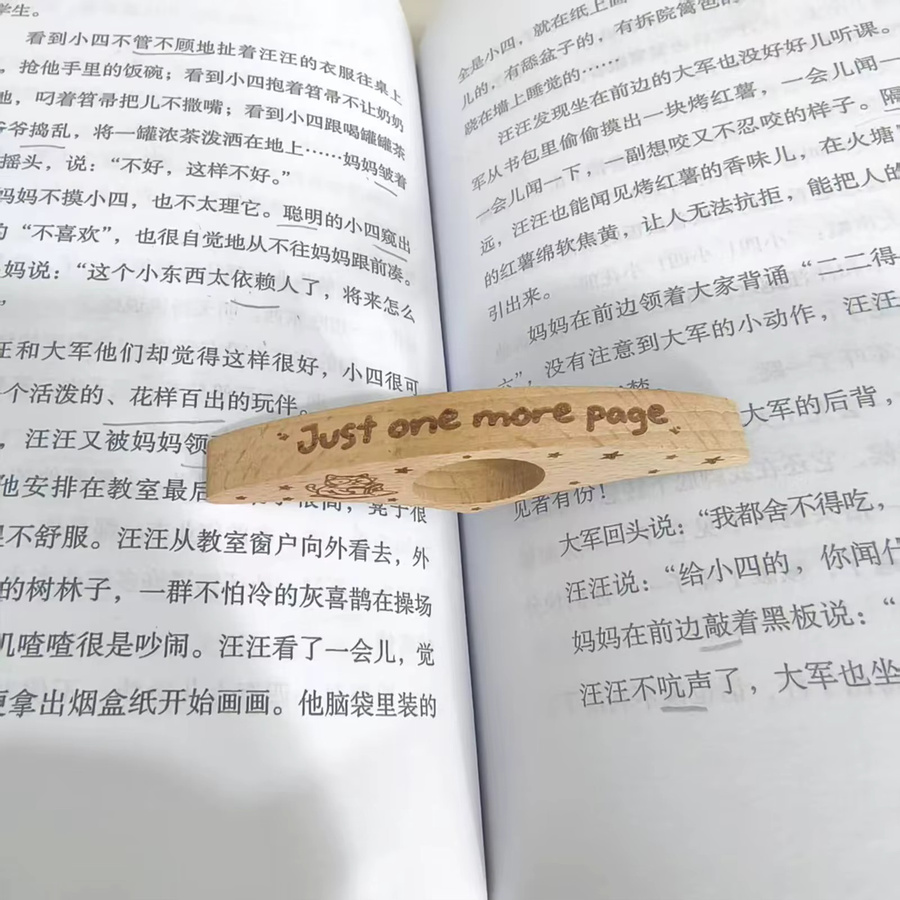 学生。
看到小四不管不顾地扯着汪汪的衣服往桌上
，抢他手里的饭碗；看到小四抱着笤帚不让奶奶
地，叼着笤帚把儿不撒嘴；看到小四跟喝罐罐茶
爷爷捣乱，将一罐浓茶泼洒在地上……妈妈皱着
摇头，说：“不好，这样不好。”
妈妈不摸小四，也不太理它。聪明的小四窥出
的“不喜欢”，也很自觉地从不往妈妈跟前凑。
妈说：“这个小东西太依赖人了，将来怎么
”
汪和大军他们却觉得这样很好，小四很可
个活泼的、花样百出的玩伴。
，汪汪又被妈妈领
他安排在教室最后
凳子很
是不舒服。汪汪从教室窗户向外看去，外
的树林子，一群不怕冷的灰喜鹊在操场
叽喳喳很是吵闹。汪汪看了一会儿，觉
便拿出烟盒纸开始画画。他脑袋里装的
Just one more page
全是小四，就在纸上画
儿的，有舔盆子的，有拆院篱笆的
跷在墙上睡觉的……
汪汪发现坐在前边的大军也没好好儿听课。
军从书包里偷偷摸出一块烤红薯，一会儿闻一
一会儿闻一下，一副想咬又不忍咬的样子。隔
远，汪汪也能闻见烤红薯的香味儿，在火塘
的红薯绵软焦黄，让人无法抗拒，能把人的
引出来。
妈妈在前边领着大家背诵“一二得
六”，没有注意到大军的小动作，汪汪
大军的后背，
见者有份！
大军回头说：“我都舍不得吃，
汪汪说：“给小四的，你闻什
妈妈在前边敲着黑板说：“
汪汪不吭声了，大军也坐